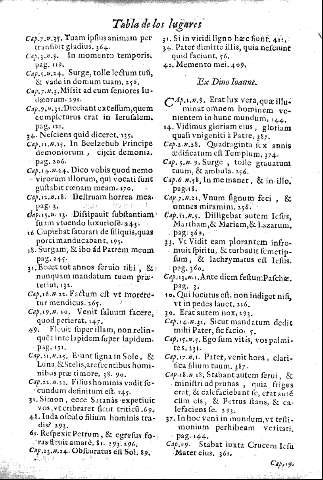 Tabla de los lugares
Cap.7.n.35. Tuam ipsius animam pertransibit gladius. 364.
Cap.5.n.5. In momento temporis. pag. 118.
Cap.5.n.24. Surge, tolle lectum tuũ, & vade in domum tuam. 256.
Cap.7.n.3. Misit ad eum seniores
Cap.9.n.31. Dicebant excessum, quem completurus erat in Ierusalem. pag. 121.
34. Nesciens quid diceret. 135.
Cap.11.n.15. In Beelzebub Principe demoniorum, eijcit demonia. pag. 206.
Cap.14.n.24. Dico vobis quod nemo virorum illorum, qui vocati sunt gustabit cœnam meam. 170.
Cap.12.n.18. Destruam horrea mea. pag. 3.
Cap.15.n.13. Dissipauit substantiam suam viuendo luxuriosè. 243.
16 Cupiebat saturari de siliquis, quas porci manducabant. 195.
18. Surgam, & ibo ad Patrem meum pag. 245.
31. tot annos seruio tibi, & nunquam mandatum tuum præteriui. 132.
Cap.16.n.22. Factum est vt moreretur mendicus. 165.
Cap.19.n.10. Venit saluum facere, quod perierat. 147.
Fleuit super illam, non relinquēt in te lapidem super lapidem. pag. 151.
Cap.21.n.25. Erunt signa in Sole, & Luna, & Stelis, arescentibus hominibus præ timore. 38. 90.
Cap.22.n.22. Filius hominis vadit secundum definitum est. 145.
31. Simon, ecce Satanas expetiuit vos, vt cribraret sicut triticũ. 69.
48. Iuda osculo filium hominis tradis? 293.
61. Respexit Petrum, & egressus foras fleuit amarè. 61. 293. 296.
Cap.23.n.24. Obscuratus est Sol. 89.
31. Si in viridi ligno hæc sunt. 421.
34. Pater dimitte illis, quia nesciunt quid faciunt. 56.
42. Memento mei. 409.
Ex Diuo Ioanne.
CAp.1.n.9. Erat lux vera, quæ illuminat omnem hominem venientem in hunc mundum. 144.
14. Vidimus gloriam eius, gloriam quasi vnigeniti à Patre. 387.
Cap.2.n.28. Quadraginta sex annis ædificatum est Templum. 374.
Surge, tolle grabatum tuum, & ambula. 256.
In me manet, & in illo. pag.18.
Cap.7.n.21. Vnum signum feci, & omnes miramini. 256.
Cap.11.n.5. Diligebat autem Iesus, Martham, & Mariam, & Lazarum. pag. 362.
33. Vt Vidit eam plorantem infremuit spiritu, & turbauit semetipsum, & lachrymatus est Iesus. pag. 360.
Cap.13.n.1. Ante diem festum Paschæ. pag. 3.
10. Qui locutus est, non indiget nisi, vt in pedes lauet. 216.
30. Erat autem nox. 193.
Cap.14.n.31. Sicut mandatum dedit mihi Pater, sic facio. 5.
Cap.15.n.5. Ego sum vitis, vos palmites. 131.
Cap.17.n.1. Pater, venit hora, clarifica filium tuum. 387.
Cap.18.n.18. Stabant autem serui, & ministri ad prunas, quia frigus erat, & calefaciebant se, erat autẽ cũm eis, & Petrus stans, & calefaciens se. 293.
37. In hoc veni in mundum, vt testimonium perhibeam veritati. pag. 144.
Cap.19. Stabat iuxta Crucem Iesu Mater eius. 361.
Cap.19.